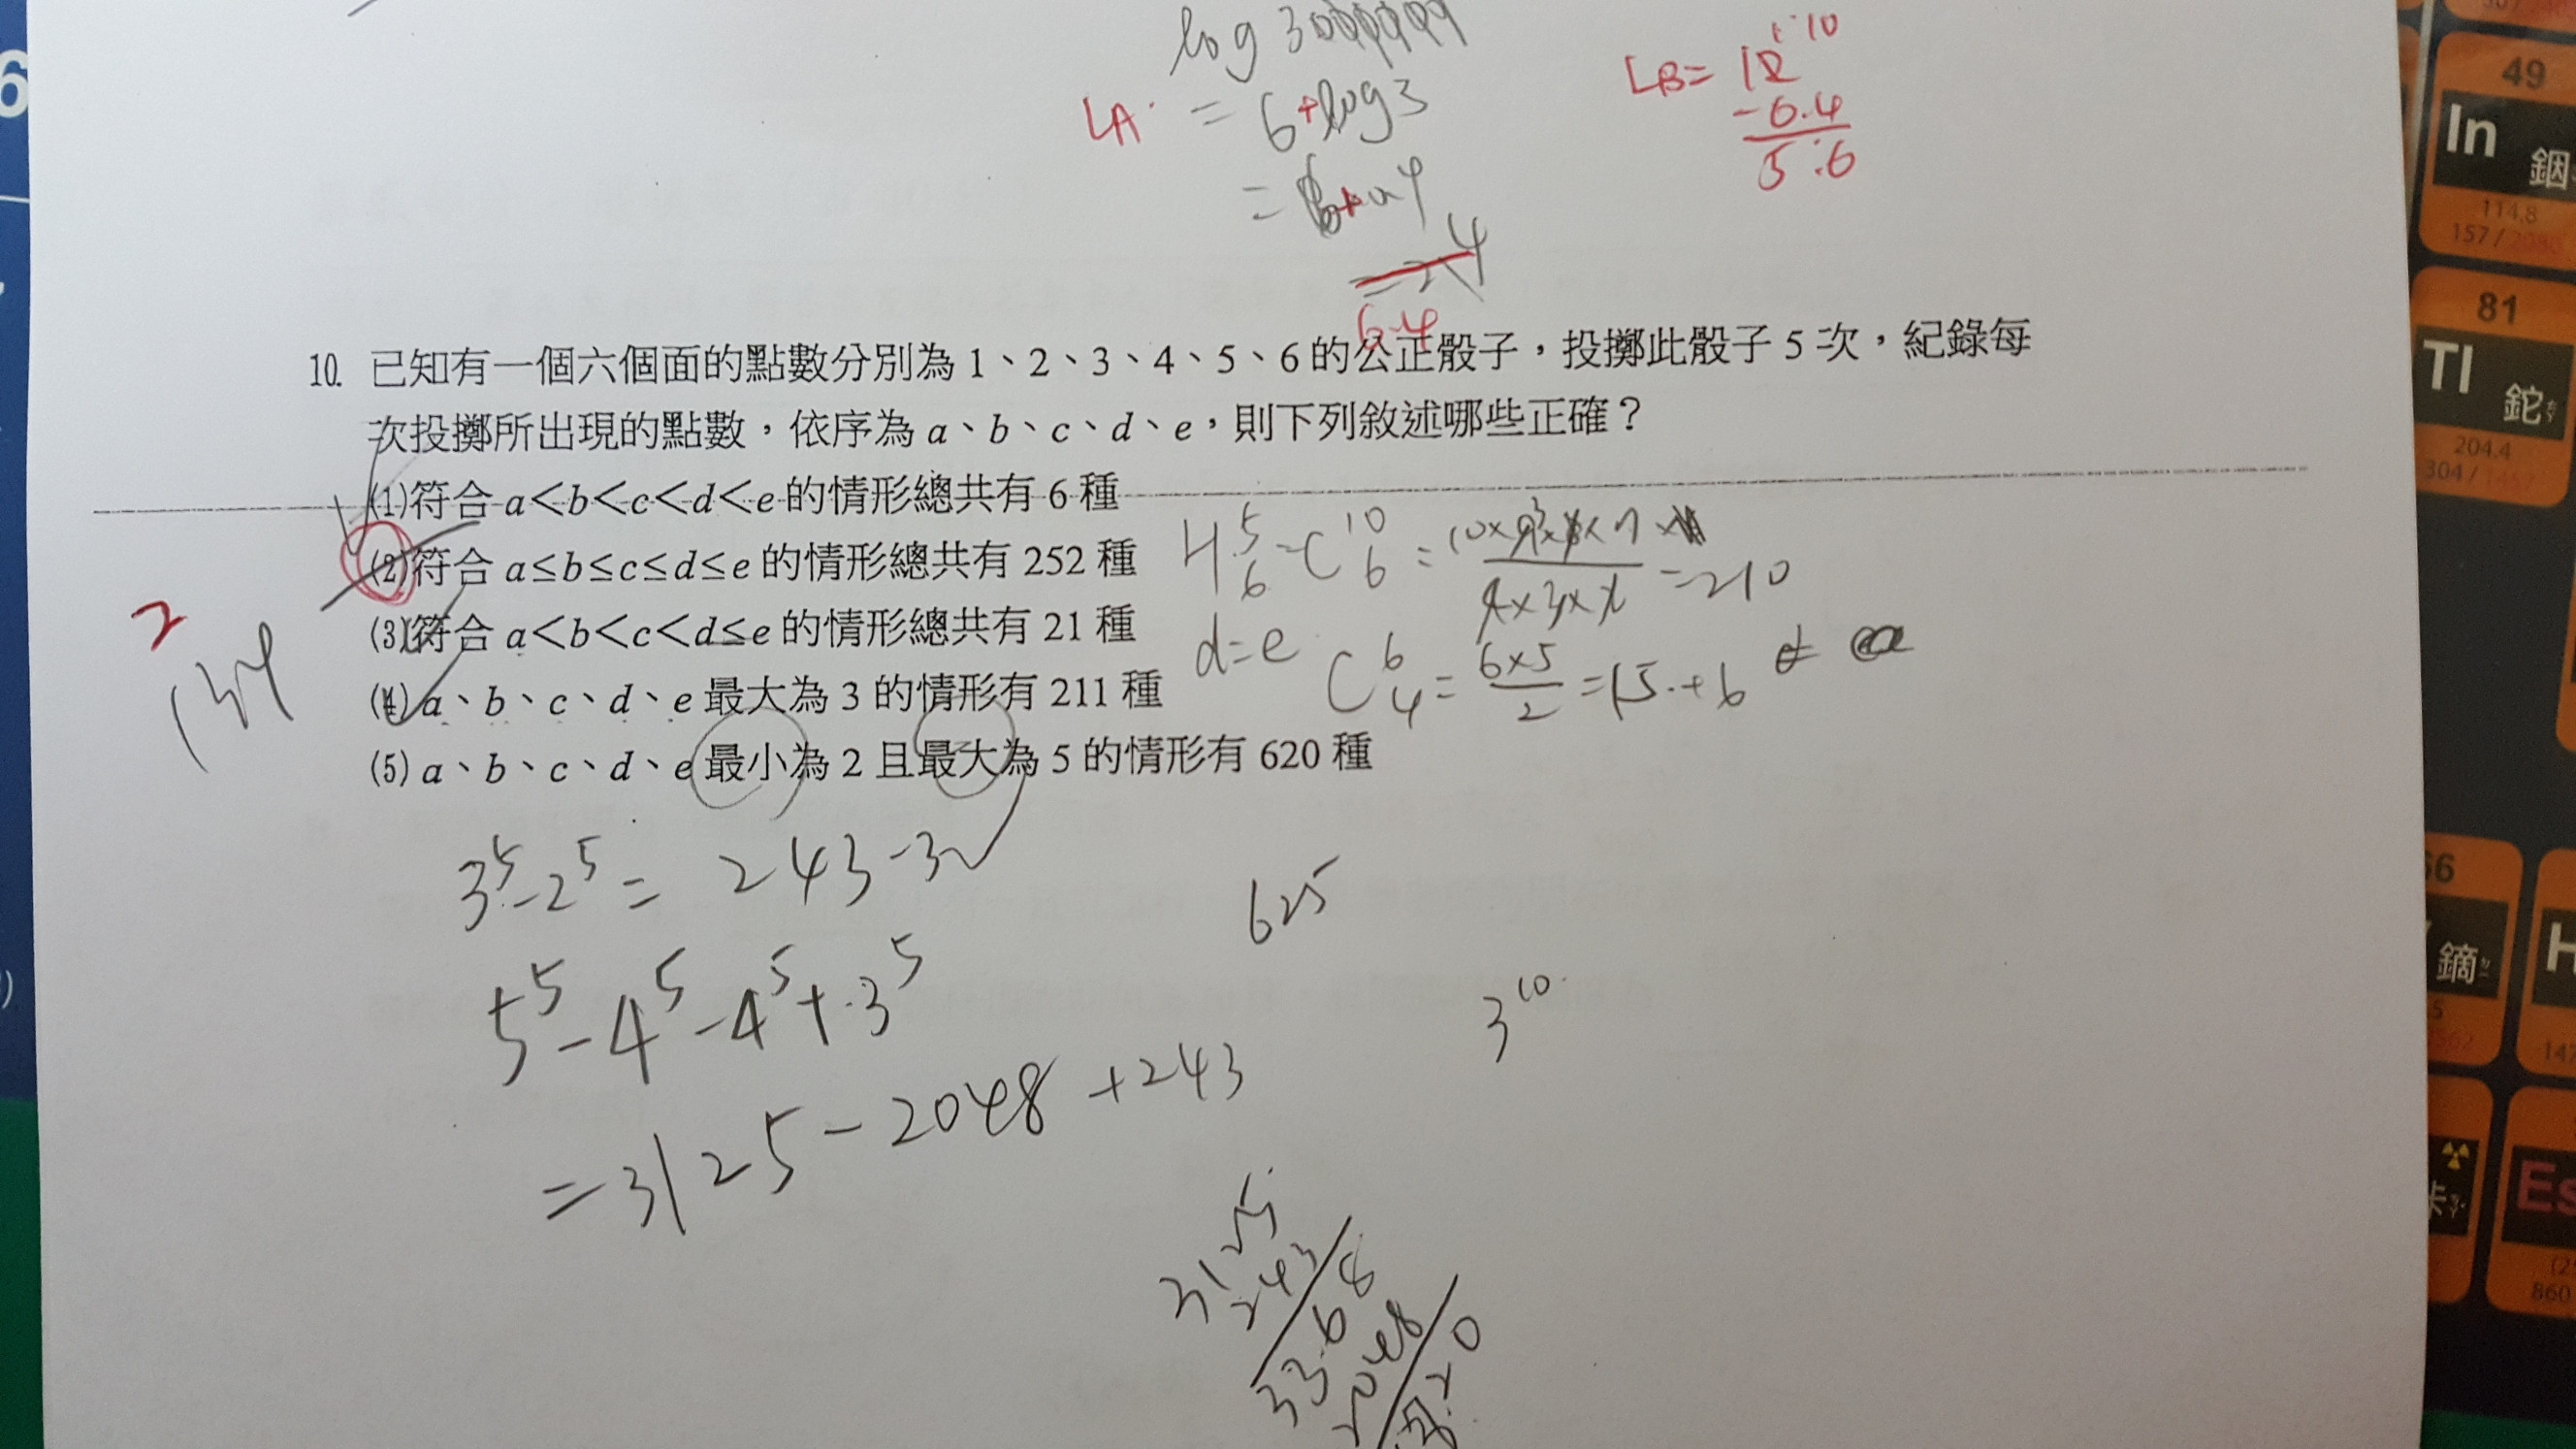 log 3000000
LA = 6+log3
LB= 12
-6.4
5.6
6.4
10. 已知有一個六個面的點數分別為 1、2、3、4、5、6 的公正骰子，投擲此骰子 5 次，紀錄每
次投擲所出現的點數，依序為 a、b、c、d、e，則下列敘述哪些正確？
(1)符合 a<b<c<d<e 的情形總共有 6 種
(2)符合 a≤b≤c≤d≤e 的情形總共有 252 種
(3)符合 a<b<c<d≤e 的情形總共有 21 種
(4) a、b、c、d、e 最大為 3 的情形有 211 種
(5) a、b、c、d、e 最小為 2 且最大為 5 的情形有 620 種
2
134
H 5 6 = C 10 6 = 10×9×8×7 / 4×3×2 = 210
d=e C 6 4 = 6×5 / 2 = 15+6
3⁵-2⁵= 243-32
625
5⁵-4⁵-4⁵+3⁵
3¹⁰
=3125-2048+243
3125
243
3368
2048
49
In
銦
114.8
157 /
81
Tl
鉈
204.4
304 /
66
鏑
H
Es
860
6